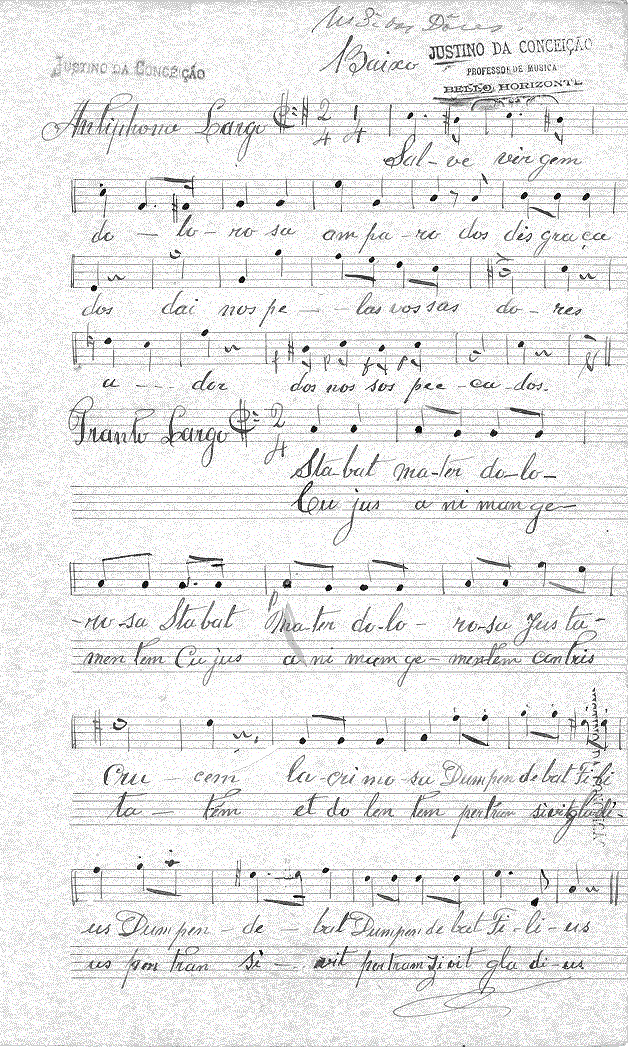 Baixo
JUSTINO DA CONCEIÇÃO
JUSTINO DA CONCEIÇÃO
PROFESSOR DE MUSICA
BELLO HORIZONTE
Antiphona Largo 2 4 1 4
Sal - ve virgem
do - lo - ro sa ampa - ro dos des graça
dos dai nos pe - - las vos sas do - res
a - - - dor dos nos sos pec - ca - dos.
Pranto Largo 2 4
Sta-bat ma-ter do-lo-
Cu jus a ni man ge-
-ro-sa Stabat Ma-ter do-lo - ro-sa Jus ta-
men tem Cu jus a ni mam ge - mentem contris
Cru - cem la-cri mo-sa Dum pen de bat Fi li
ta - tem et do len tem per tran sivit gladi-
us Dum pen - de - bat Dum pen de bat Fi - li - us
us per tran si - vit per tram si vit gla di - us